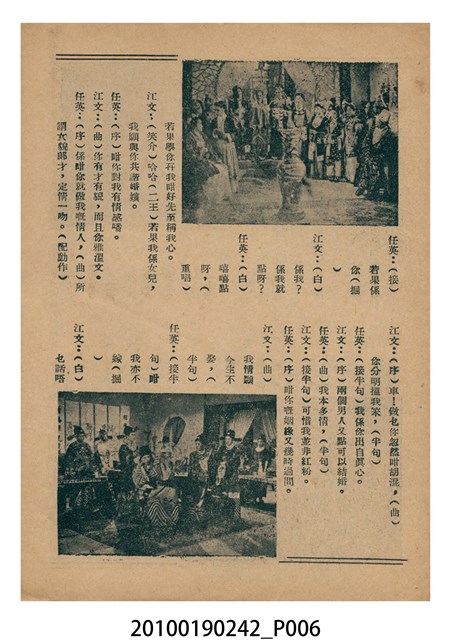 任英：(接)
若果係
你(掘
)
江文：(白)
係我？
係我就
點呀？
任英：(白)
嘻嘻點
呀，(
重唱)
若果學你再我咁好先至稱我心。
江文：(笑介)哈哈(二王)若果我係女兒，
我願與你共諧婚嬪。
任英：(序)咁你對我有情感嗎。
江文：(曲)你有才有貌，而且你溫文。
任英：(序)係咁你就做我嘅情人，(曲)所
謂女貌郎才，定情一吻。(配動作)
江文：(序)車！做乜你忽然咁胡混，(曲)
你分明搵我笨，(半句)
任英：(接半句)我係你出自眞心。
江文：(序)兩個男人又點可以結婚。
任英：(曲)我本多情，(半句)
江文：(接半句)可惜我並非紅粉。
任英：(序)咁你嘅姻緣又幾時過問。
江文：(曲)
我情願
今生不
娶，(
半句)
任英：(接半
句)咁
我亦不
嫁(掘
)
江文：(白)
乜話唔
20100190242_P006